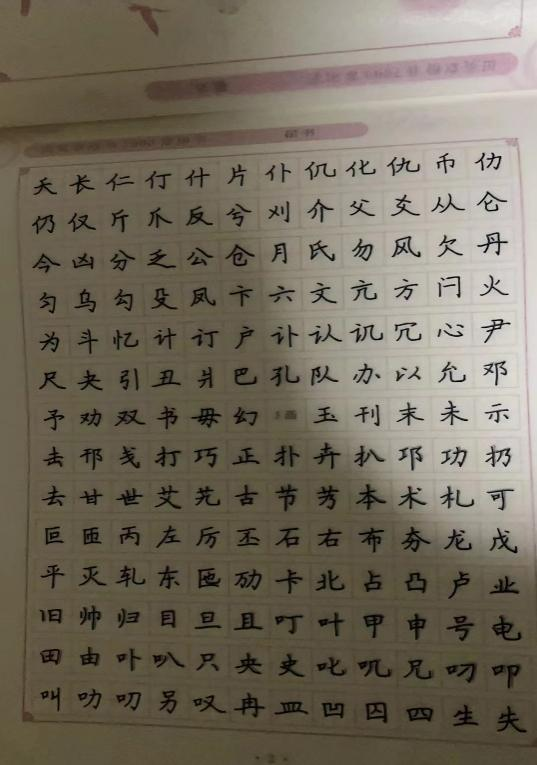 楷书
夭长仁仃什片仆仉化仇币仂
仍仅斤爪反兮刈介父爻从仑
今凶分乏公仓月氏勿风欠丹
匀乌勾殳凤卞六文亢方闩火
为斗忆计订户讣认讥冗心尹
尺夬引丑爿巴孔队办以允邓
予劝双书毋幻 5画 玉刊末未示
去邗戋打巧正扑卉扒邛功扔
去甘世艾艽古节芳本术札可
叵匝丙左厉丕石右布夯龙戊
平灭轧东匜劢卡北占凸卢业
旧帅归目旦且叮叶甲申号电
田由卟叭只央史叱叽兄叼叩
叫叻叨另叹冉皿凹囚四生失
2